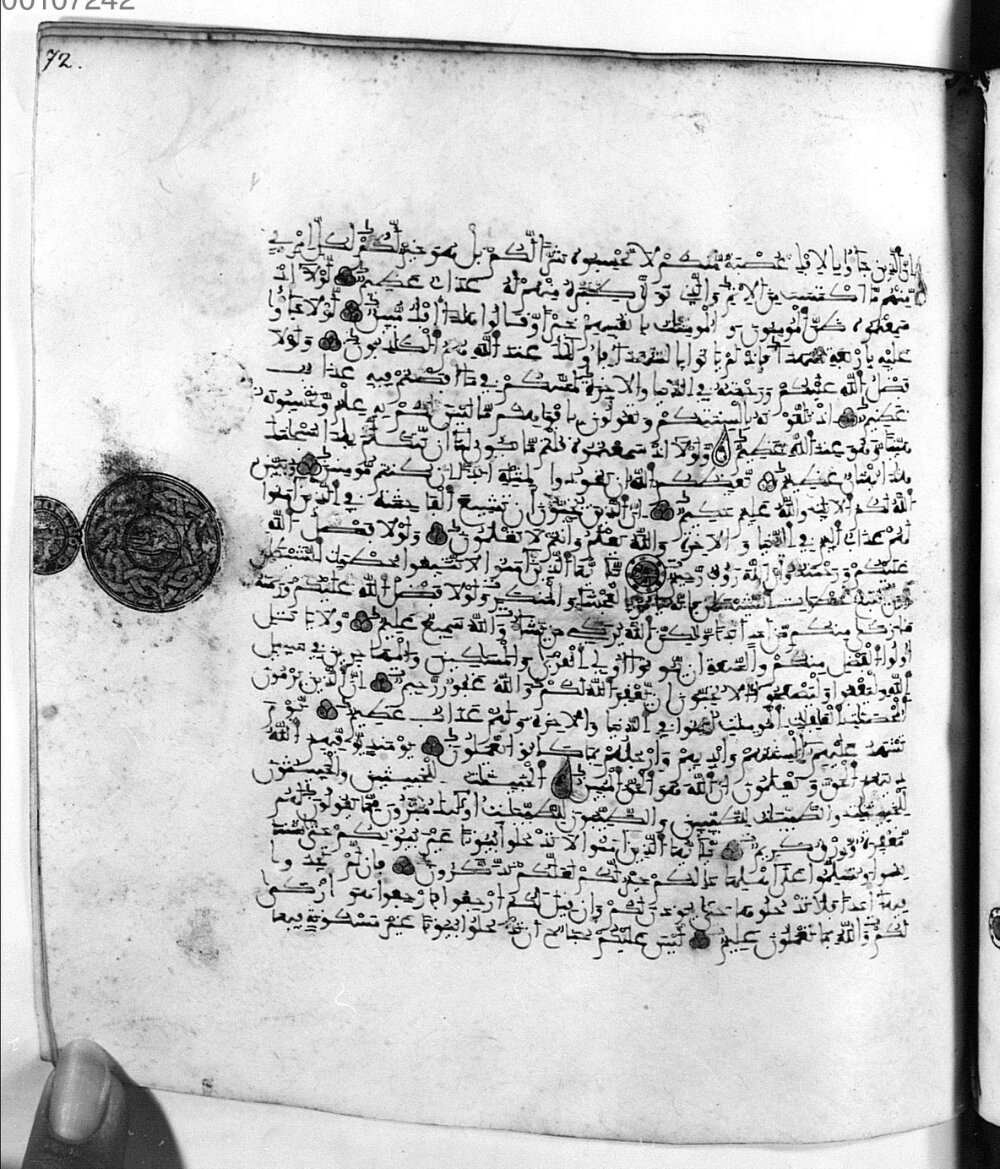 72.
ان الذين جاءو بالافك عصبة منكم لا تحسبوه شرا لكم بل هو خير لكم لكل امرئ
منهم ما اكتسب من الاثم والذي تولى كبره منهم له عذاب عظيم لولا اذ
سمعتموه ظن المومنون والمومنت بانفسهم خيرا وقالوا هذا افك مبين لولا جاءو
عليه باربعة شهداء فاذ لم ياتوا بالشهداء فاولئك عند الله هم الكذبون ولولا
فضل الله عليكم ورحمته في الدنيا والاخرة لمسكم في ما افضتم فيه عذاب
عظيم اذ تلقونه بالسنتكم وتقولون بافواهكم ما ليس لكم به علم وتحسبونه
هينا وهو عند الله عظيم ولولا اذ سمعتموه قلتم ما يكون لنا ان نتكلم بهذا سبحنك
هذا بهتن عظيم يعظكم الله ان تعودوا لمثله ابدا ان كنتم مومنين ويبين
الله لكم الايت والله عليم حكيم ان الذين يحبون ان تشيع الفحشة في الذين امنوا
لهم عذاب اليم في الدنيا والاخرة والله يعلم وانتم لا تعلمون ولولا فضل الله
عليكم ورحمته وان الله رءوف رحيم يايها الذين امنوا لا تتبعوا خطوت الشيطن
ومن يتبع خطوت الشيطن فانه يامر بالفحشاء والمنكر ولولا فضل الله عليكم ورحمته
ما زكى منكم من احد ابدا ولكن الله يزكي من يشاء والله سميع عليم ولا ياتل
اولوا الفضل منكم والسعة ان يوتوا اولي القربى والمسكين والمهجرين في سبيل
الله وليعفوا وليصفحوا الا تحبون ان يغفر الله لكم والله غفور رحيم ان الذين يرمون
المحصنت الغفلت المومنت لعنوا في الدنيا والاخرة ولهم عذاب عظيم يوم
تشهد عليهم السنتهم وايديهم وارجلهم بما كانوا يعملون يومئذ يوفيهم الله
دينهم الحق ويعلمون ان الله هو الحق المبين الخبيثت للخبيثين والخبيثون
للخبيثت والطيبت للطيبين والطيبون للطيبت اولئك مبرءون مما يقولون لهم
مغفرة ورزق كريم يايها الذين امنوا لا تدخلوا بيوتا غير بيوتكم حتى تستا
نسوا وتسلموا على اهلها ذلكم خير لكم لعلكم تذكرون فان لم تجدوا
فيها احدا فلا تدخلوها حتى يوذن لكم وان قيل لكم ارجعوا فارجعوا هو ازكى
لكم والله بما تعملون عليم ليس عليكم جناح ان تدخلوا بيوتا غير مسكونة فيها